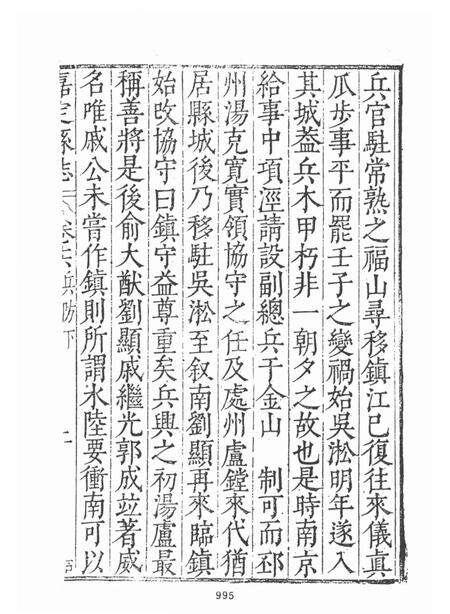 兵官駐常熟之福山尋移鎮江已復往來儀真
瓜步事平而罷壬子之變禍始吳淞明年遂入
其城葢兵木甲朽非一朝夕之故也是時南京
給事中項涇請設副總兵于金山 制可而邳
州湯克寬實領協守之任及處州盧鏜來代猶
居縣城後乃移駐吳淞至叙南劉顯再來臨鎮
始改協守曰鎮守益尊重矣兵興之初湯盧最
稱善將是後俞大猷劉顯戚繼光郭成竝著威
名唯戚公未嘗作鎮則所謂水陸要衝南可以
嘉定縣志 卷十六 兵防下
995